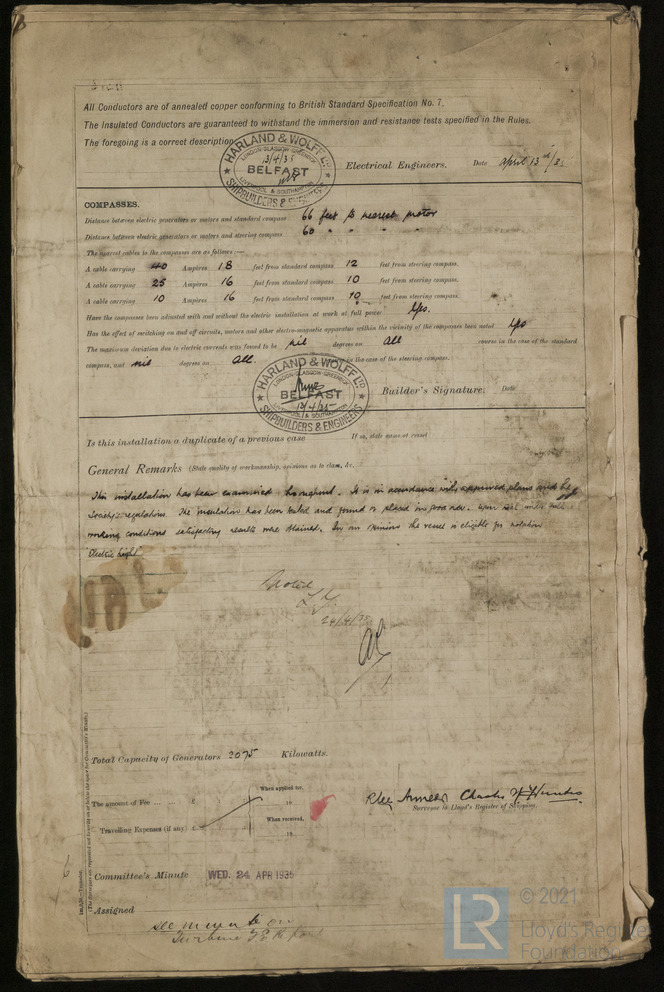 All Conductors are of annealed copper conforming to British Standard Specification No. 7.
The Insulated Conductors are guaranteed to withstand the immersion and resistance tests specified in the Rules.
The foregoing is a correct description.
HARLAND & WOLFF LTD
LONDON-GLASGOW-GREENOCK
13/4/35
BELFAST
LIVERPOOL & SOUTHAMPTON
SHIPBUILDERS & ENGINEERS
Electrical Engineers. Date April 13th/35
COMPASSES.
Distance between electric generators or motors and standard compass 66 feet to nearest motor
Distance between electric generators or motors and steering compass 60 " " " "
The nearest cables to the compasses are as follows:—
A cable carrying 40 Ampères 18 feet from standard compass 12 feet from steering compass.
A cable carrying 25 Ampères 16 feet from standard compass 10 feet from steering compass.
A cable carrying 10 Ampères 16 feet from standard compass 10 feet from steering compass.
Have the compasses been adjusted with and without the electric installation at work at full power Yes.
Has the effect of switching on and off circuits, motors and other electro-magnetic apparatus within the vicinity of the compasses been noted Yes
The maximum deviation due to electric currents was found to be nil degrees on all course in the case of the standard
compass, and nil degrees on all. in the case of the steering compass.
HARLAND & WOLFF LTD
LONDON-GLASGOW-GREENOCK
BELFAST
13/4/35
LIVERPOOL & SOUTHAMPTON
SHIPBUILDERS & ENGINEERS
Builder's Signature. Date
Is this installation a duplicate of a previous case If so, state name of vessel
General Remarks (State quality of workmanship, opinions as to class, &c.
This installation has been examined throughout. It is in accordance with approved plans and the
Society's regulations. The insulation has been tested and found good. Upon test under full
working conditions satisfactory results were obtained. In our opinion the vessel is eligible for notation
"Electric Light"
Noted
24/4/35
Total Capacity of Generators 2075 Kilowatts.
The amount of Fee ... ... £
When applied for,
19
Travelling Expenses (if any) £
When received,
19
Charles
Surveyor to Lloyd's Register of Shipping.
Committee's Minute WED. 24 APR 1935
Assigned
see minute on
(The Surveyors are requested not to write on or below the space for Committee's Minute.)
© 2021
LR
Lloyd's Register
Foundation